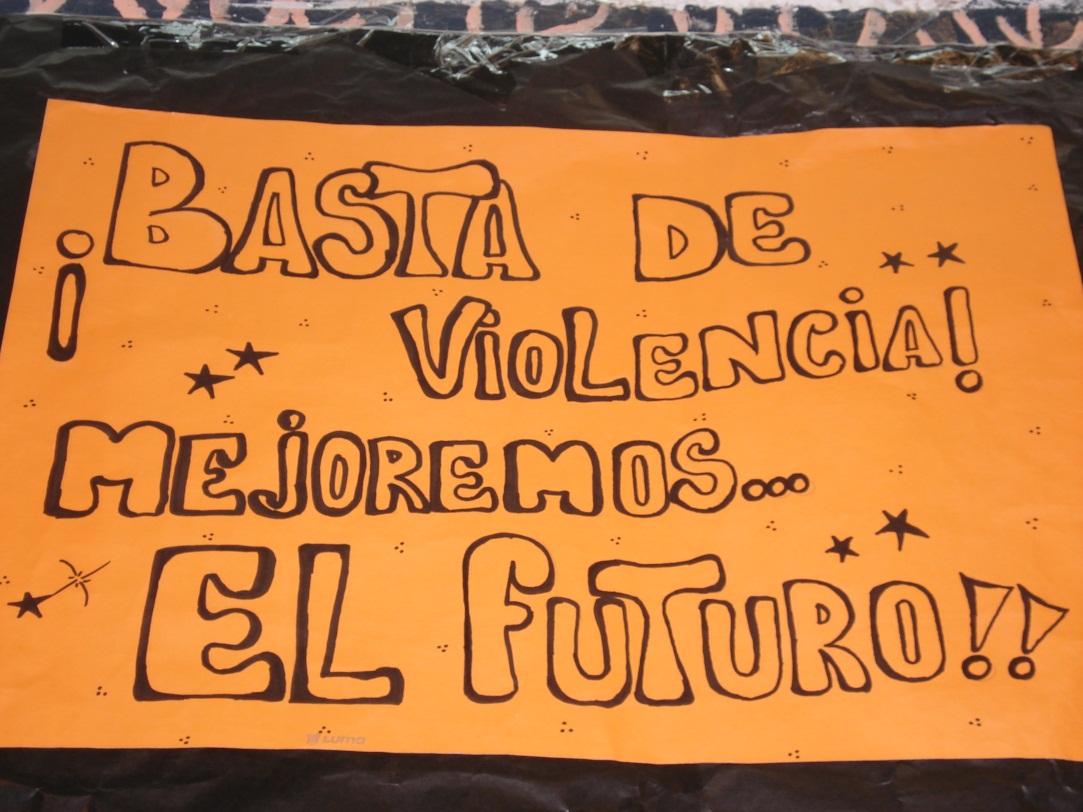 ¡BASTA DE
VIOLENCIA!
MEJOREMOS...
EL FUTURO!!
Luma